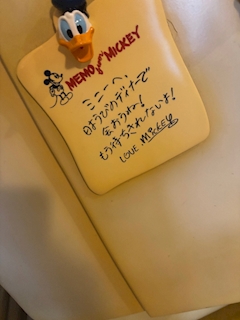 MEMO from MICKEY
ミニーへ、
日ようびのディナーで
会おうね!
もう待ちきれないよ!
LOVE, Mickey